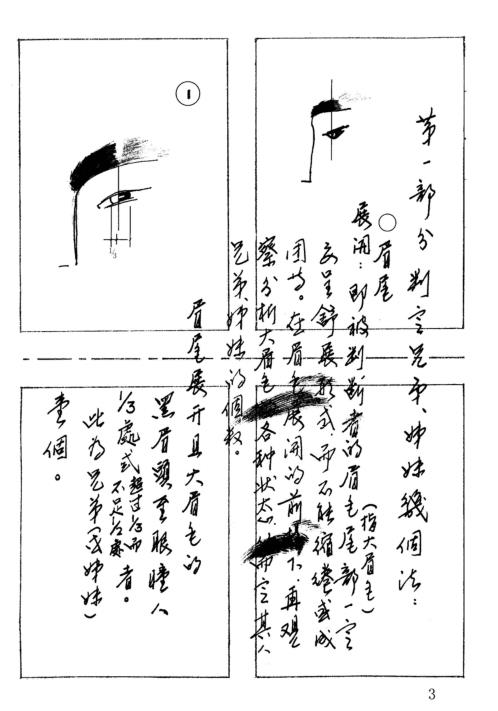 第一部分判定兄弟、姊妹幾個法：
○眉尾
展開：即被判断者的眉毛尾部一定
（指大眉毛）
要呈舒展形式，而不能縮捲或成
团等。在眉毛展開的前提下，再观
察分析大眉毛各种状态，从而定其人
兄弟、姊妹的個数。
①
1/3
眉尾展开且大眉毛的
黑眉頭至眼瞳人
1/3處或超过1/3而
不足1/2處者。
此为兄弟（或姊妹）
壹個。
3